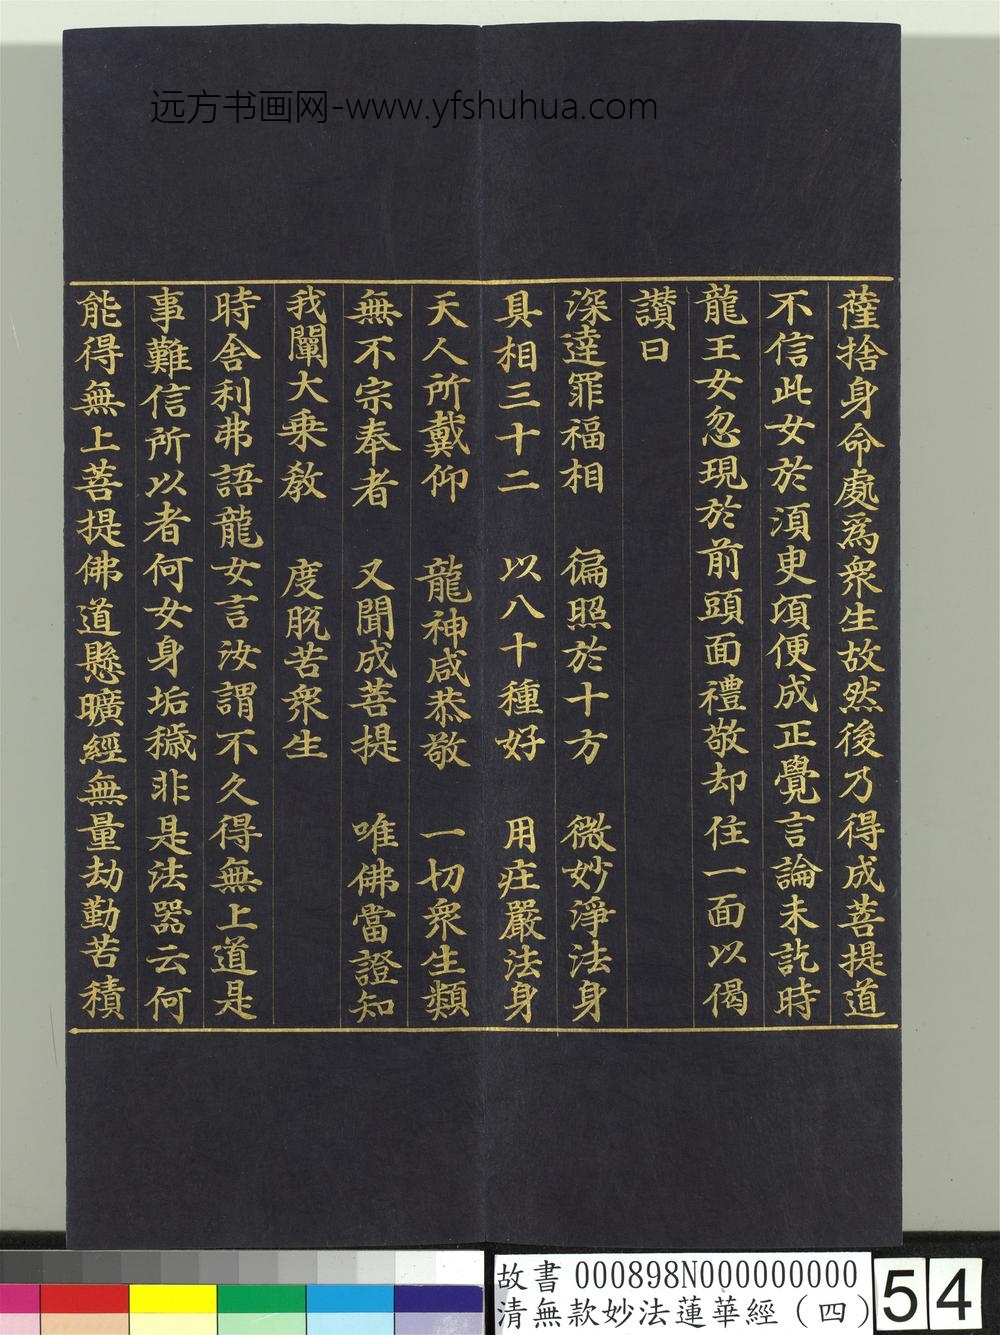 远方书画网-www.yfshuhua.com
薩捨身命處爲衆生故然後乃得成菩提道
不信此女於湏臾頃便成正覺言論未訖時
龍王女忽現於前頭面禮敬却住一面以偈
讃曰
深達罪福相 徧照於十方 微妙淨法身
具相三十二 以八十種好 用庄嚴法身
天人所戴仰 龍神咸恭敬 一切衆生類
無不宗奉者 又聞成菩提 唯佛當證知
我闡大乗教 度脱苦衆生
時舍利弗語龍女言汝謂不久得無上道是
事難信所以者何女身垢穢非是法器云何
能得無上菩提佛道懸曠經無量劫勤苦積
故書 000898N000000000
清無款妙法蓮華經（四）
54